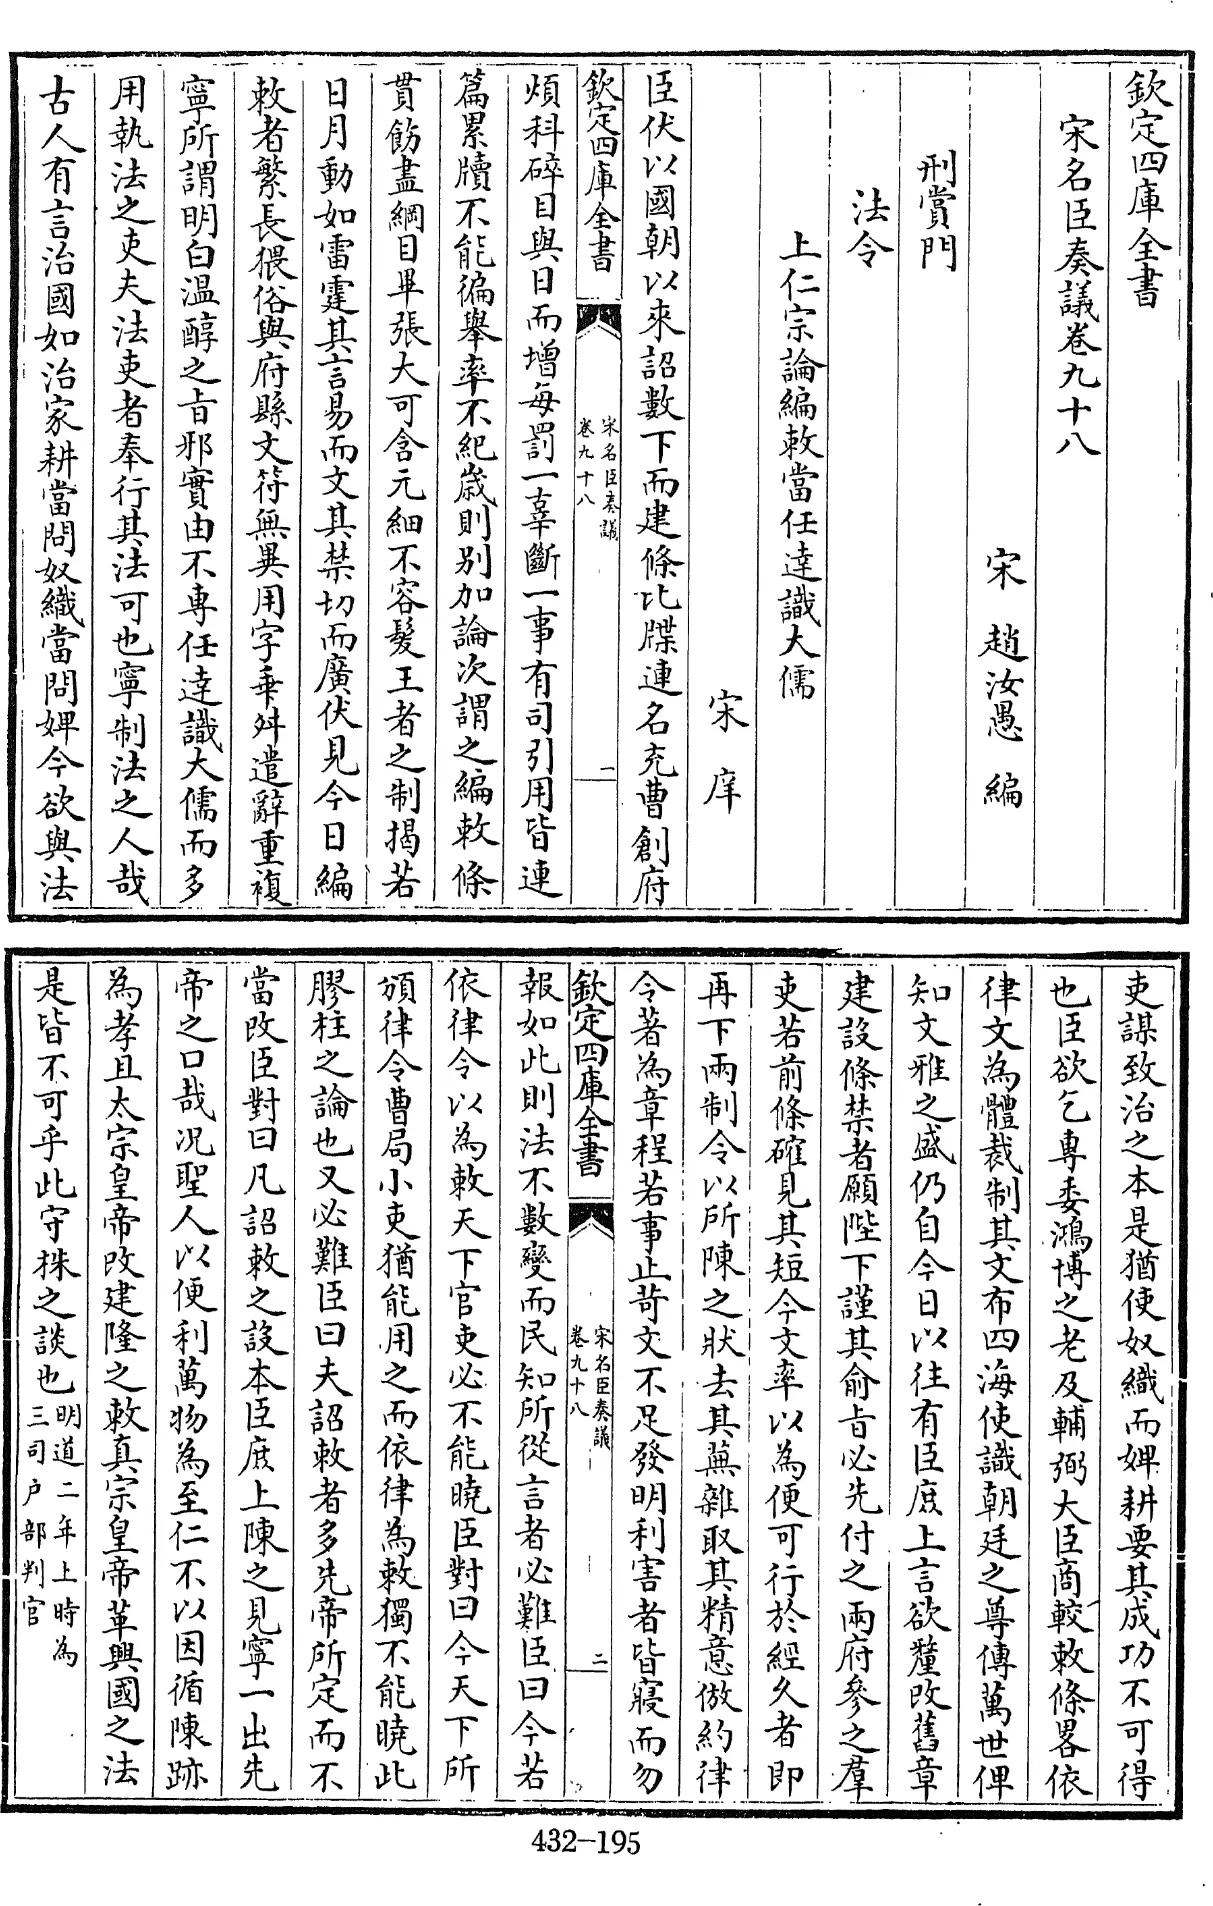 欽定四庫全書
宋名臣奏議卷九十八
宋 趙汝愚 編
刑賞門
法令
上仁宗論編敕當任達識大儒
宋庠
臣伏以國朝以來詔數下而建條比牒連名充曹創府
欽定四庫全書
宋名臣奏議
卷九十八
一
煩科碎目與日而增每罰一辜斷一事有司引用皆連
篇累牘不能徧舉率不紀歲則別加論次謂之編敕條
貫飭盡綱目畢張大可含元細不容髮王者之制揭若
日月動如雷霆其言易而文其禁切而廣伏見今日編
敕者繁長猥俗與府縣文符無異用字乖舛遣辭重複
寧所謂明白温醇之旨邪實由不專任達識大儒而多
用執法之吏夫法吏者奉行其法可也寧制法之人哉
古人有言治國如治家耕當問奴織當問婢今欲與法
吏謀致治之本是猶使奴織而婢耕要其成功不可得
也臣欲乞專委鴻博之老及輔弼大臣商較敕條畧依
律文為體裁制其文布四海使識朝廷之尊傳萬世俾
知文雅之盛仍自今日以往有臣庶上言欲釐改舊章
建設條禁者願陛下謹其俞旨必先付之兩府參之羣
吏若前條確見其短今文率以為便可行於經久者即
再下兩制令以所陳之狀去其蕪雜取其精意倣約律
令著為章程若事止苛文不足發明利害者皆寢而勿
欽定四庫全書
宋名臣奏議
卷九十八
二
報如此則法不數變而民知所從言者必難臣曰今若
依律令以為敕天下官吏必不能曉臣對曰今天下所
頒律令曹局小吏猶能用之而依律為敕獨不能曉此
膠柱之論也又必難臣曰夫詔敕者多先帝所定而不
當改臣對曰凡詔敕之設本臣庶上陳之見寧一出先
帝之口哉况聖人以便利萬物為至仁不以因循陳跡
為孝且太宗皇帝改建隆之敕真宗皇帝革興國之法
是皆不可乎此守株之談也明道二年上時為
三司户部判官
432-195